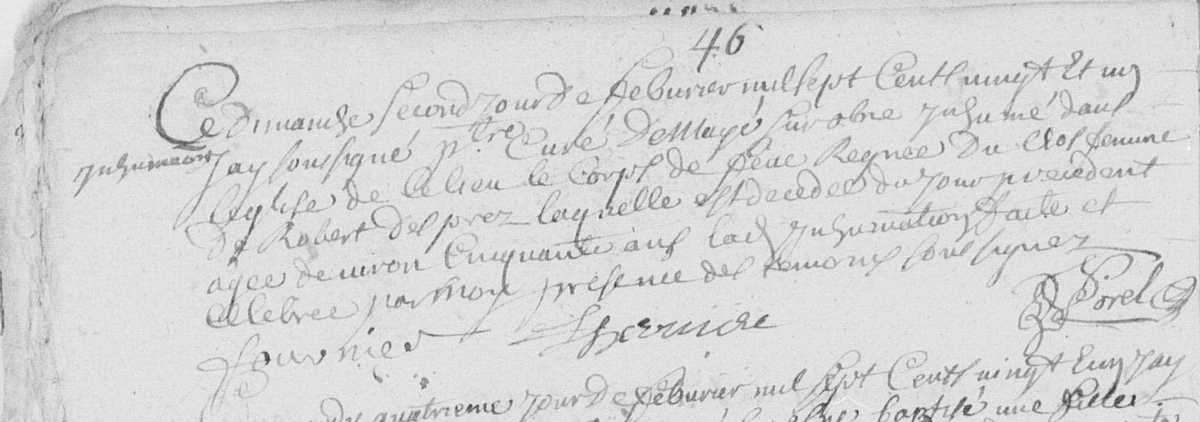 46
Ce Dimanche second jour de feburier mil sept Cents vingt et un
Inhumation
Jay soussigné ptre Curé de Mayé sur obne Inhumé dans
leglise de ce lieu le Corps de feue Regnee Du Clos femme
De Robert Desprez laquelle est decedee du jour precedent
agee denviron Cinquante ans lad Inhumation faite et
Celebree par moy presence des temoins soussignez
fournier
Sorel
Du quatrieme jour de feburier mil sept Cents vingt et un Jay
baptisé une fille